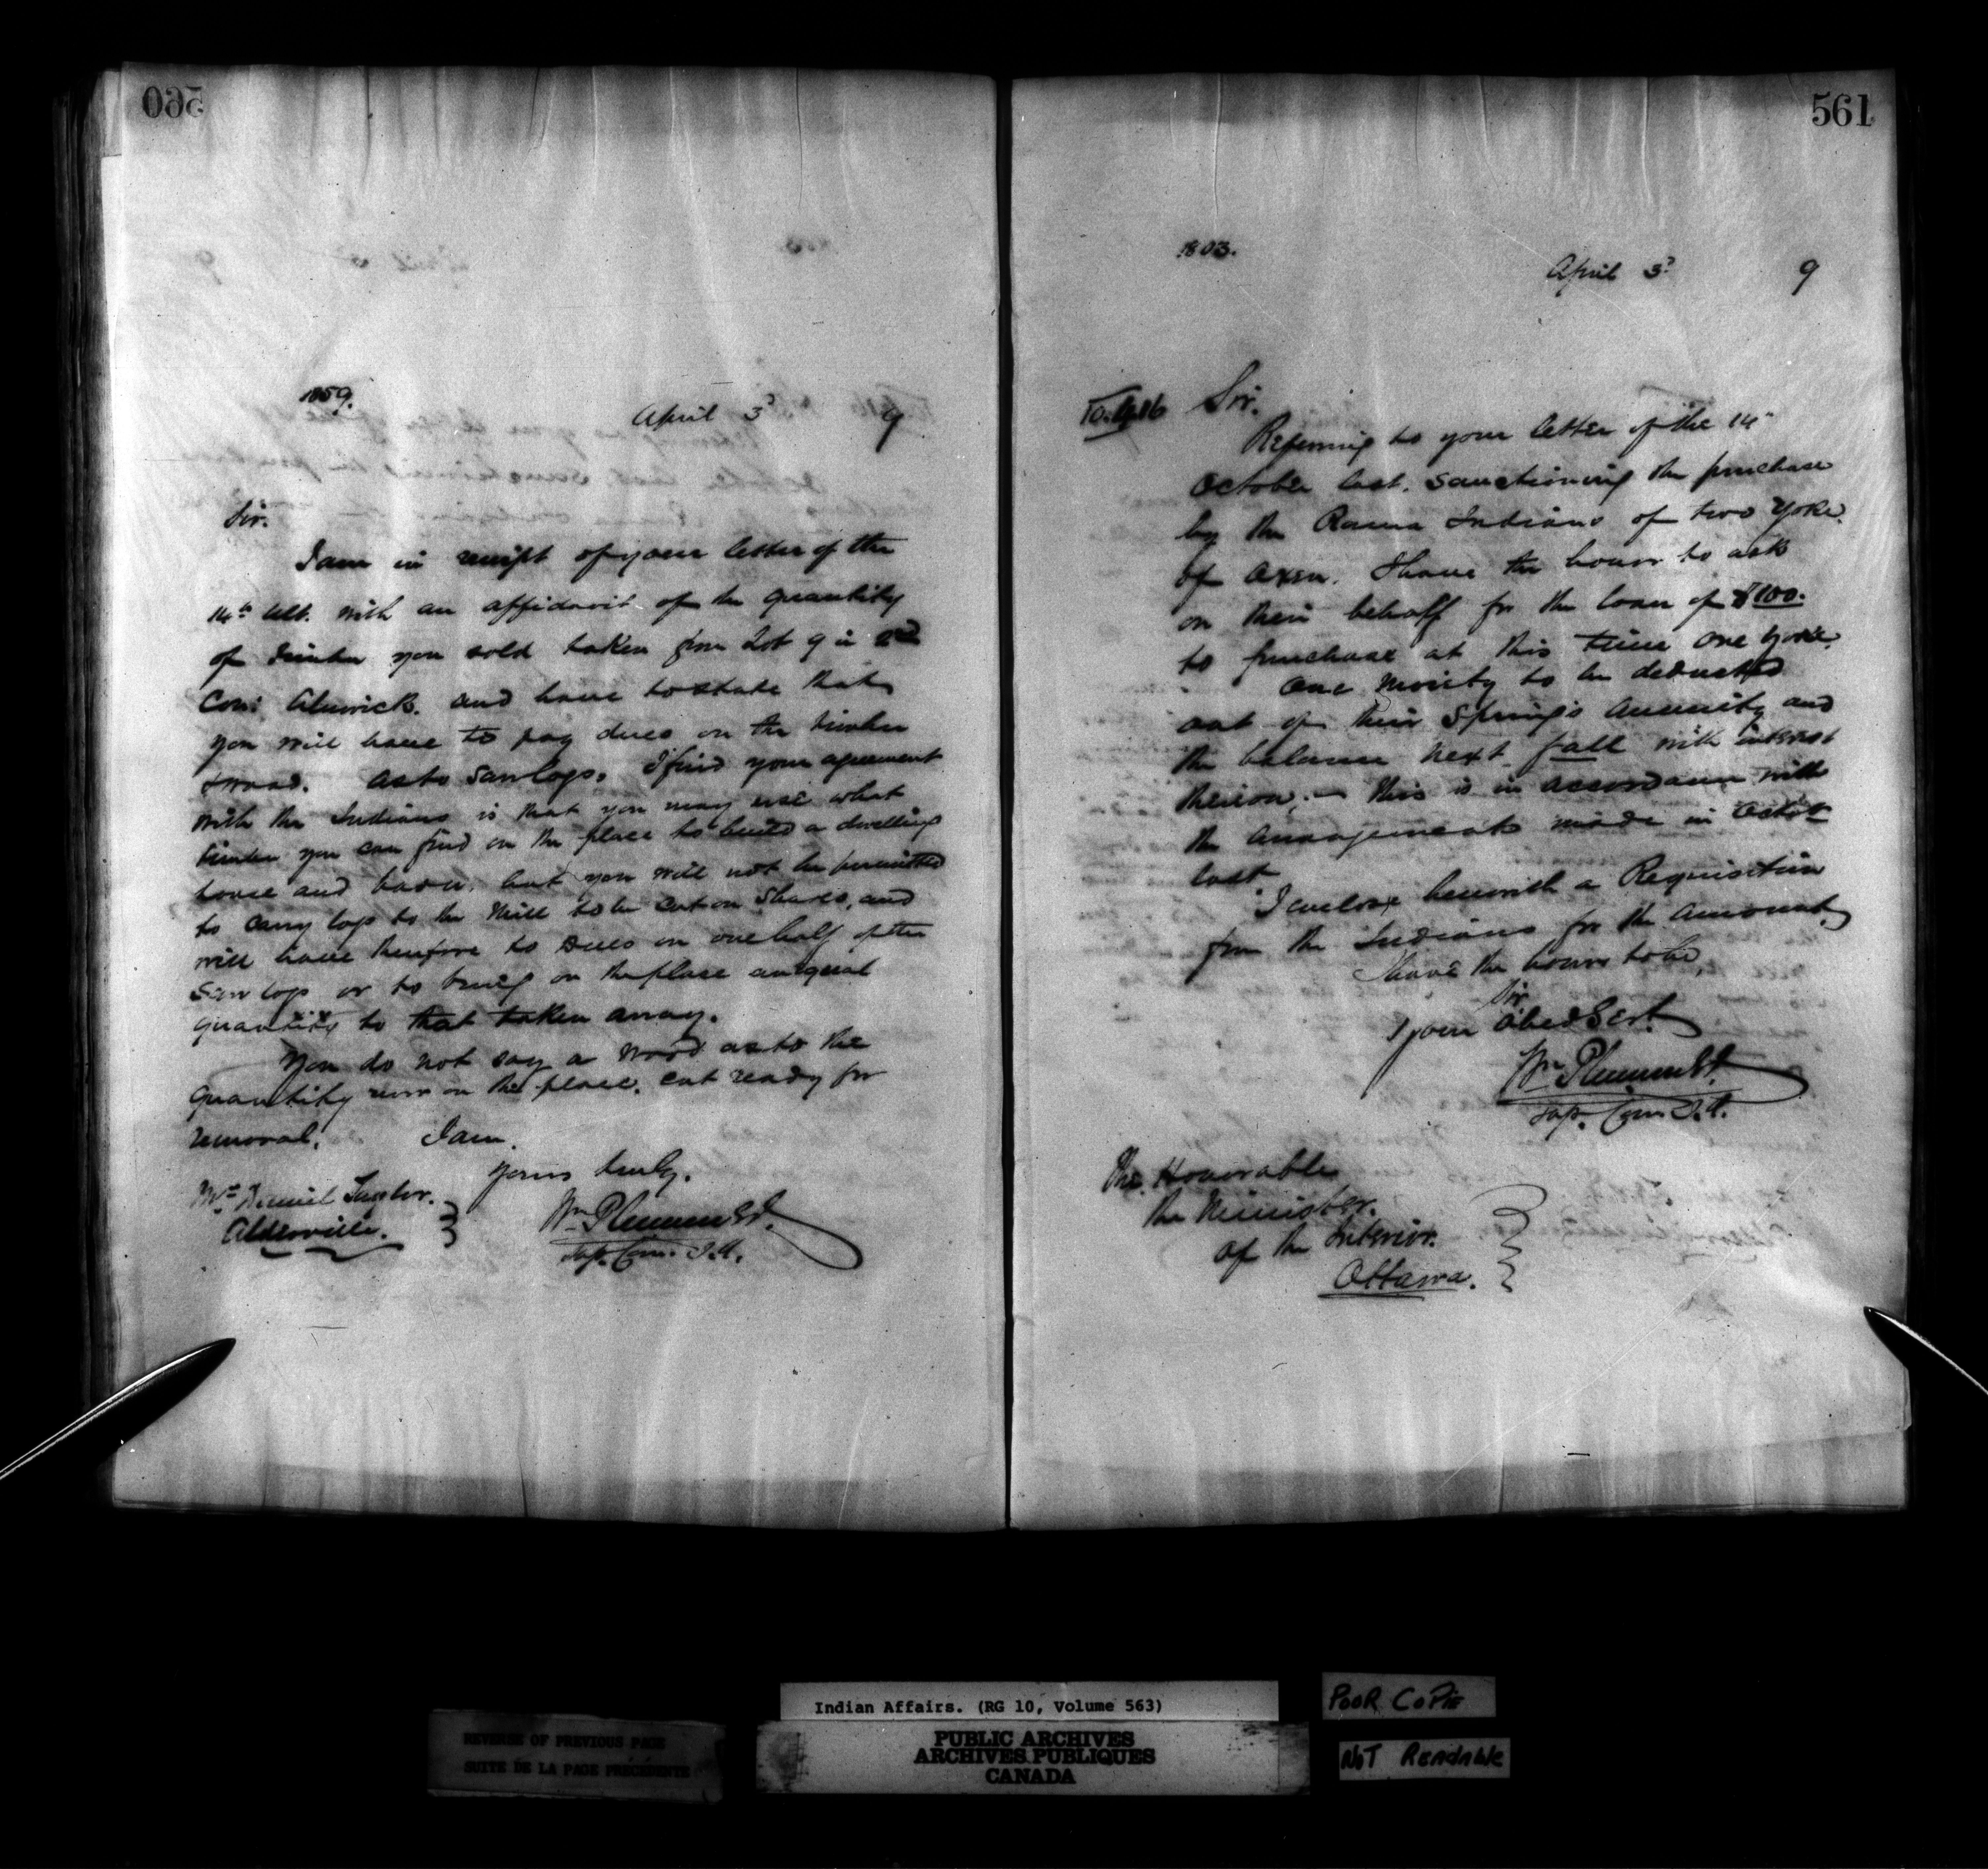 560
1859.
April 3d 9
Sir.
I am in receipt of your letter of the
14th Ult. with an affidavit of the quantity
of timber you sold taken from Lot 9 in
Con: Alnwick. and have to state that
you will have to pay dues on the timber
& wood. As to Saw logs. I find your agreement
with the Indians is that you may use what
timber you can find on the place to build a dwelling
house and barn. but you will not be permitted
to carry logs to the Mill to be cut on Shares, and
will have therefore to dues on one half of the
Saw logs or to bring on the place an equal
quantity to that taken away.
You do not say a word as to the
quantity now on the place. cut ready for
removal. I am.
Yours truly.
Mr Daniel
Alderville.
Wm Plummer
Sup. Com. I.A.
561
1803.
April 3d 9
To. 9816 Sir.
Referring to your letter of the 14"
October last. Sanctioning the purchase
by the Rama Indians of two Yoke.
of Oxen. I have the honor to ask
on their behalf for the loan of $100.
to purchase at this time one Yoke.
One Moiety to be deducted
out of their Spring's Annuity and
the balance next fall with interest
thereon; — this is in accordance with
the arrangements made in Octob
last.
I enclose herewith a Requisition
from the Indians for the Amount.
I have the honor to be,
Sir
Your Obed Sert.
Wm Plummer
Sup. Com I.A.
The Honorable
the Minister.
of the Interior.
Ottawa.
Indian Affairs. (RG 10, Volume 563)
PUBLIC ARCHIVES
ARCHIVES PUBLIQUES
CANADA
REVERSE OF PREVIOUS PAGE
SUITE DE LA PAGE PRÉCÉDENTE
POOR COPIE
NOT READABLE